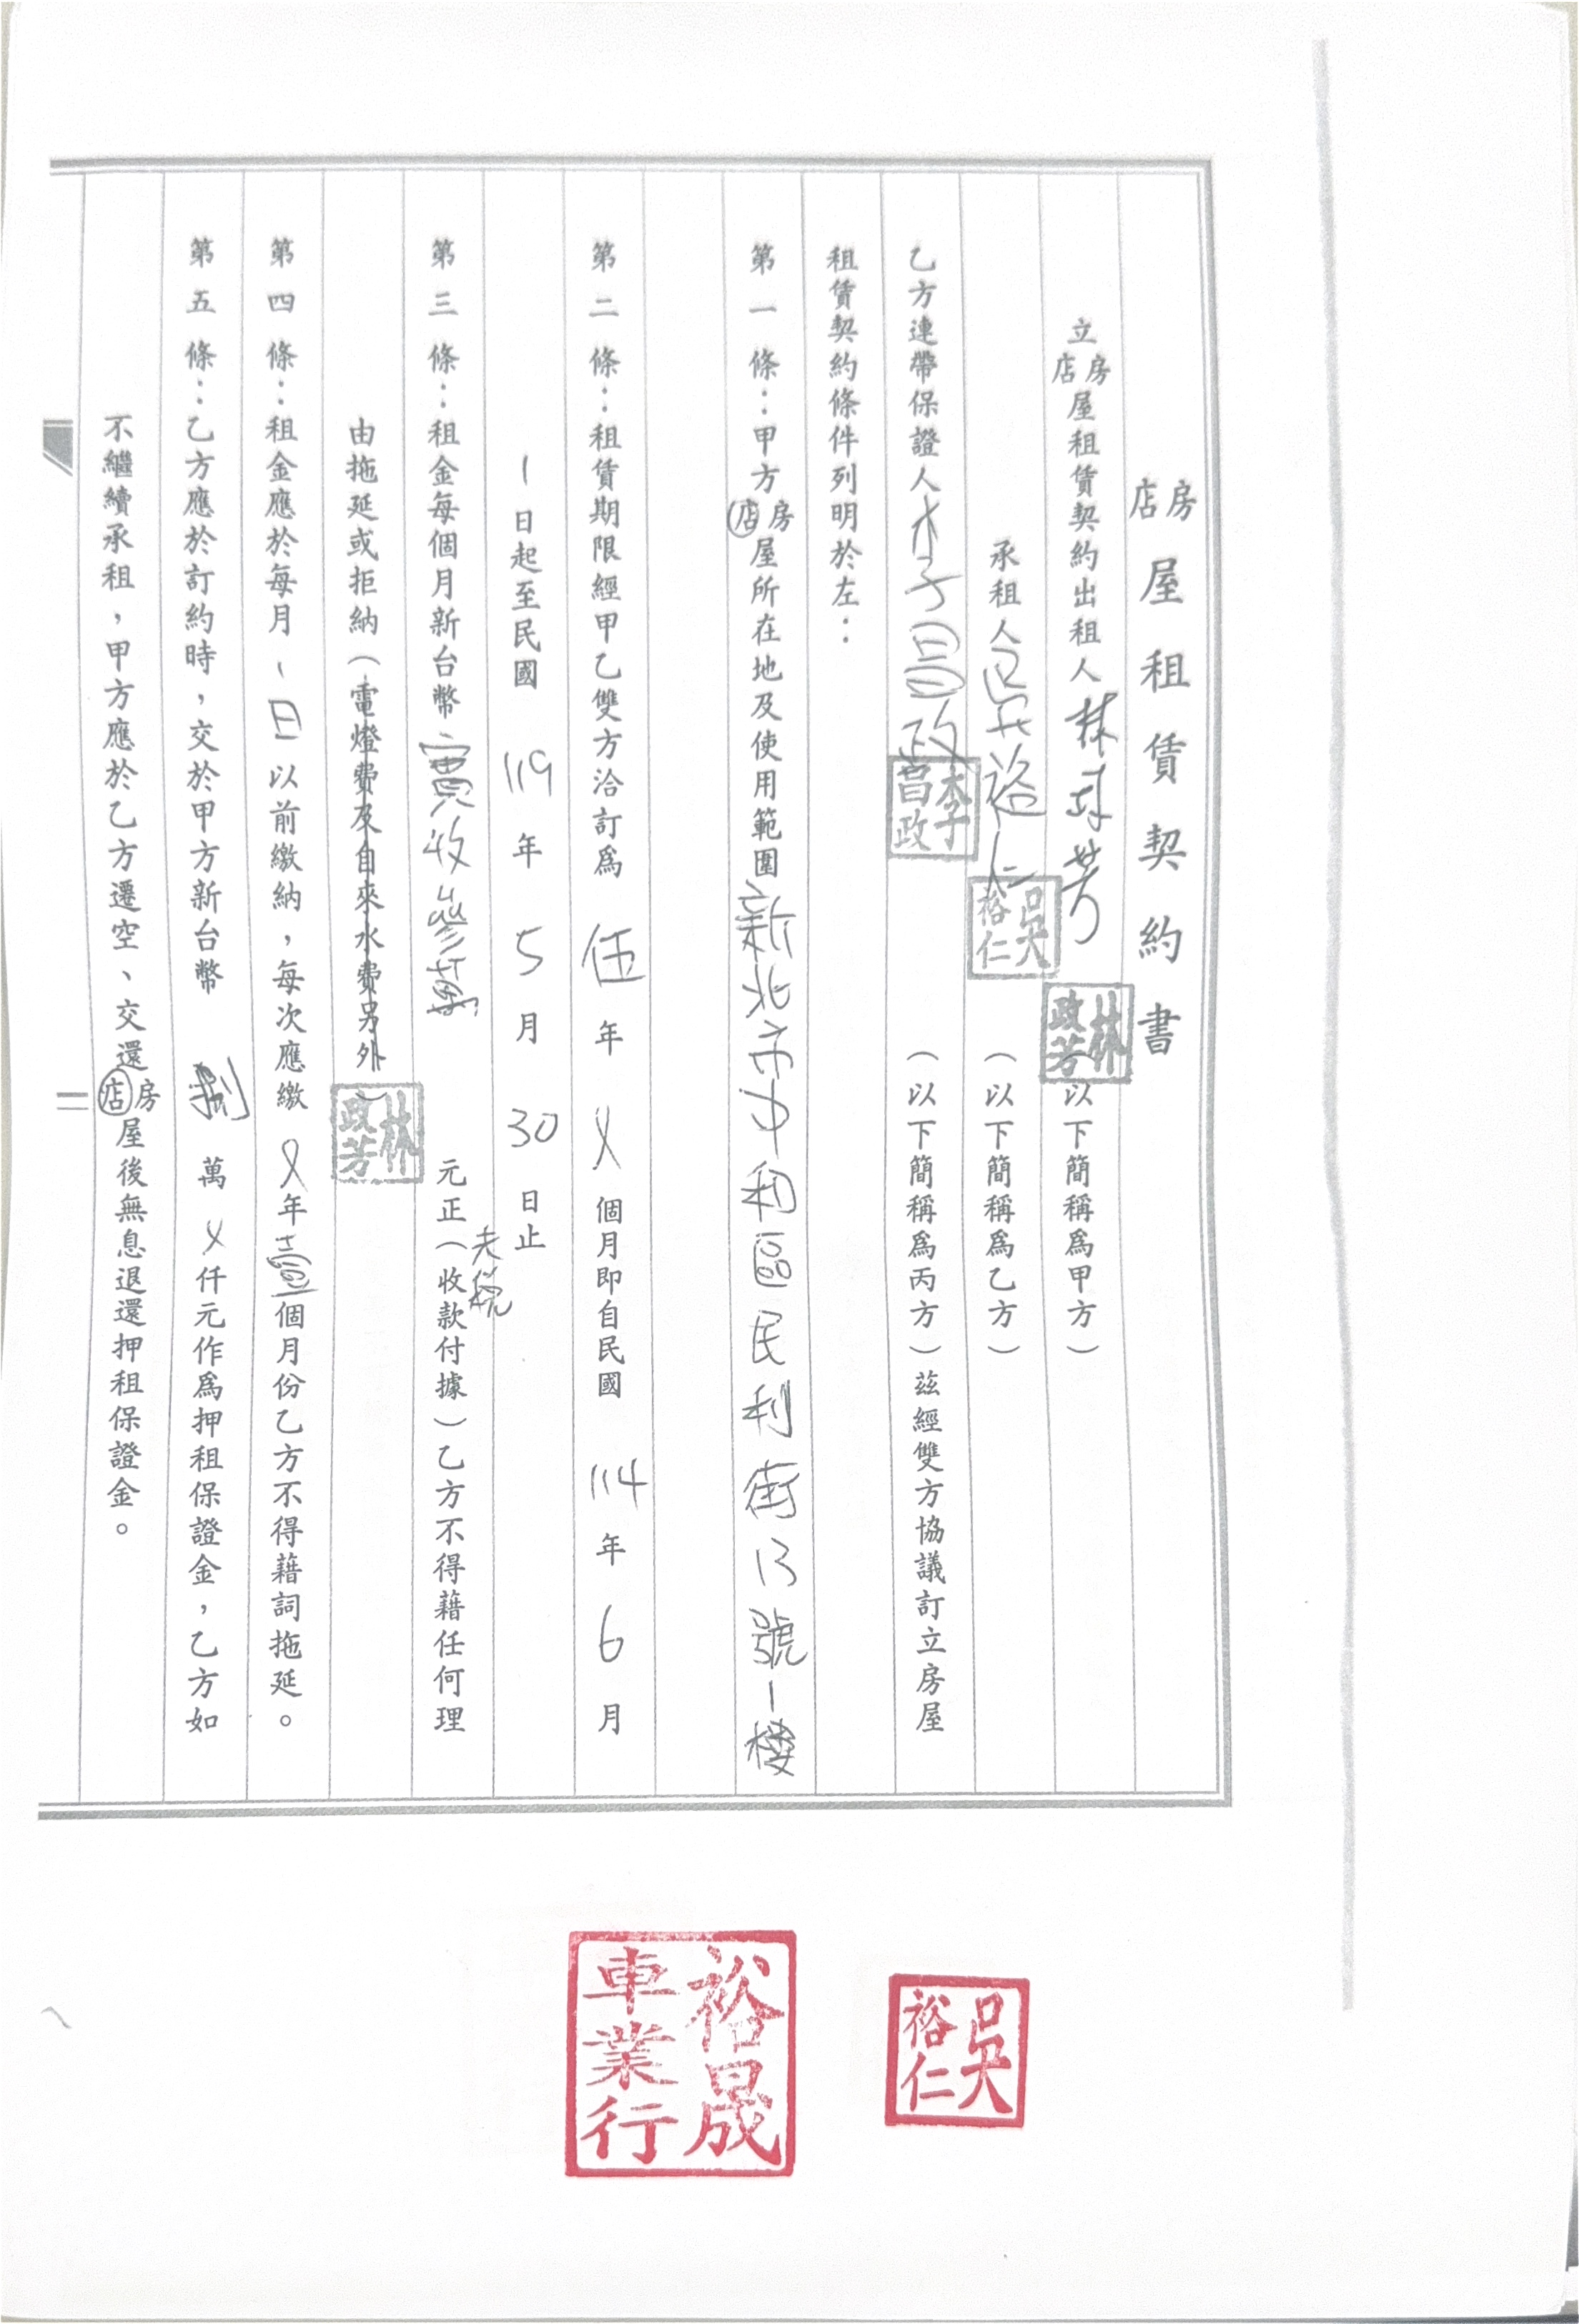 房店屋租賃契約書
立房店屋租賃契約出租人林政芳 林政芳（以下簡稱為甲方）
承租人吳裕仁 吳裕仁（以下簡稱為乙方）
乙方連帶保證人李昌政 李昌政（以下簡稱為丙方）茲經雙方協議訂立房屋
租賃契約條件列明於左：
第一條：甲方房店屋所在地及使用範圍新北市中和區民利街13號1樓
第二條：租賃期限經甲乙雙方洽訂為 伍年 個月即自民國 114年 6月
1日起至民國 119年 5月 30日止
第三條：租金每個月新台幣實收參萬 元正（收款付據）乙方不得藉任何理
未稅
由拖延或拒納（電燈費及自來水費另外） 林政芳
第四條：租金應於每月1日以前繳納，每次應繳 年壹個月份乙方不得藉詞拖延。
第五條：乙方應於訂約時，交於甲方新台幣 捌萬 仟元作為押租保證金，乙方如
不繼續承租，甲方應於乙方遷空、交還房店屋後無息退還押租保證金。
二
吳裕仁
裕晟車業行